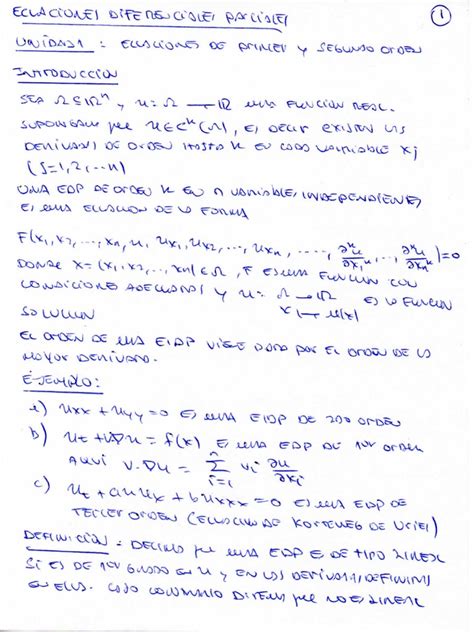 ECUACIONES DIFERENCIALES PARCIALES
1
UNIDAD 1 : ECUACIONES DE PRIMER Y SEGUNDO ORDEN
INTRODUCCION
SEA Ω ⊆ ℝⁿ y u: Ω → ℝ UNA FUNCION REAL.
SUPONGAMOS que u ∈ Cᵏ(Ω), ES DECIR EXISTEN LAS
DERIVADAS DE ORDEN HASTA K EN CADA VARIABLE xj
(j=1,2,...n)
UNA EDP DE ORDEN K EN n VARIABLES INDEPENDIENTES
ES UNA ECUACION DE LA FORMA
F(x₁,x₂,...,xₙ,u,ux₁,ux₂,...,uxₙ,....,∂ᵏu/∂x₁ᵏ,..,∂ᵏu/∂xₙᵏ)=0
DONDE x=(x₁,x₂,...,xₙ) ∈ Ω, F ES UNA FUNCION CON
CONDICIONES ADECUADAS y u: Ω → ℝ ES LA FUNCION
x ↦ u(x)
SOLUCION
EL ORDEN DE UNA EDP VIENE DADA POR EL ORDEN DE LA
MAYOR DERIVADA.
EJEMPLO:
a) uxx + uyy = 0 ES UNA EDP DE 2DO ORDEN
b) ut + v∇u = f(x) ES UNA EDP DE 1er ORDEN
AQUI v·∇u = Σⁿᵢ₌₁ vi ∂u/∂xi
c) ut + auux + buxxx = 0 ES UNA EDP DE
TERCER ORDEN (ECUACION DE KORTEWEG DE VRIES)
DEFINICIÓN : DECIMOS que UNA EDP ES DE TIPO LINEAL
SI ES DE 1er GRADO EN u Y EN LAS DERIVADAS DEFINIDAS
EN ELLA. CASO CONTRARIO DIREMOS que NO ES LINEAL